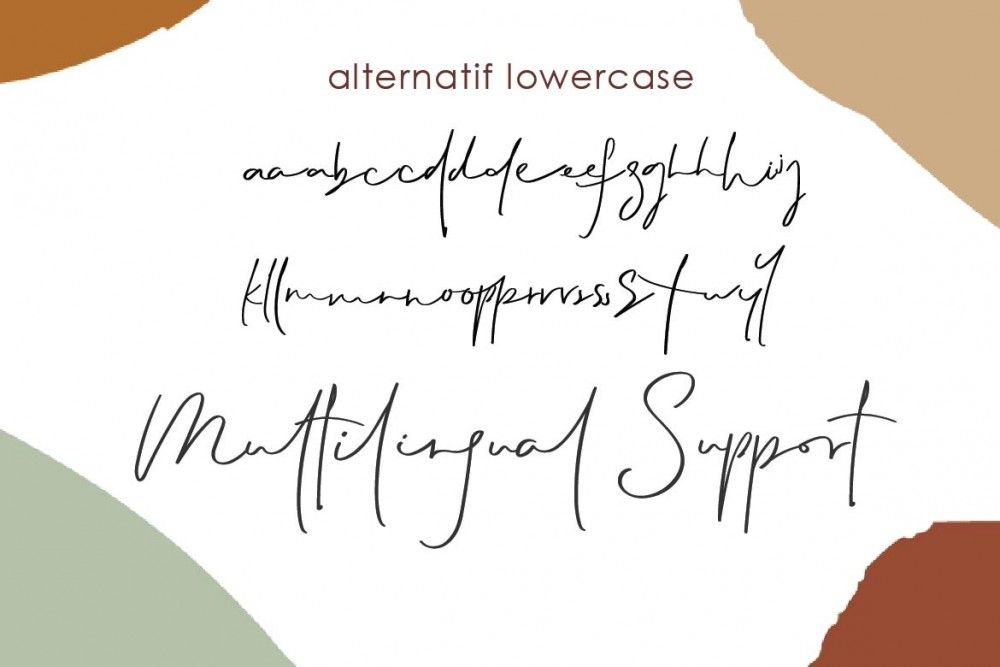 alternatif lowercase
aaabccdddeeefzghhhijj
klllmmmnnooopppprrrrssssStwyy
Multilingual Support